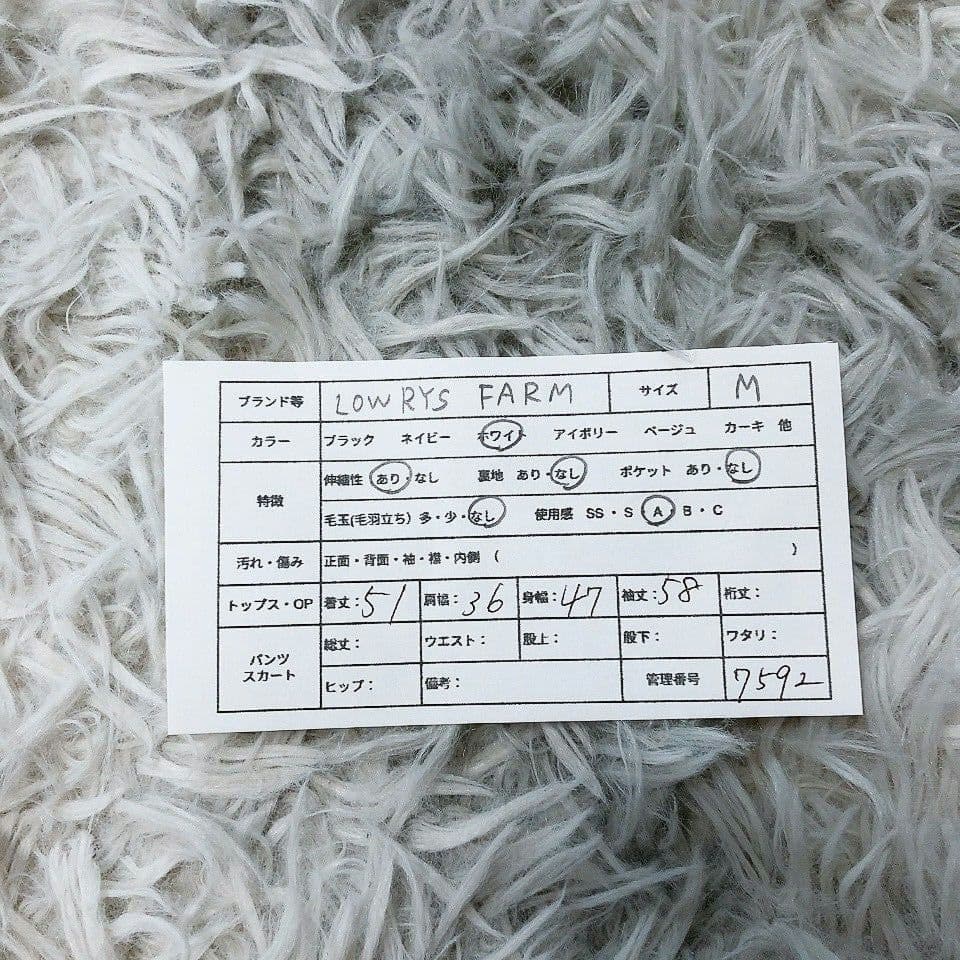 ブランド等 LOWRYS FARM サイズ M
カラー ブラック ネイビー ホワイト アイボリー ベージュ カーキ 他
特徴 伸縮性 あり・なし 裏地 あり・なし ポケット あり・なし
毛玉(毛羽立ち) 多・少・なし 使用感 SS・S・A・B・C
汚れ・傷み 正面・背面・袖・襟・内側 ( )
トップス・OP 着丈:51 肩幅:36 身幅:47 袖丈:58 裄丈:
パンツ スカート 総丈: ウエスト: 股上: 股下: ワタリ:
ヒップ:備考: 管理番号 7592